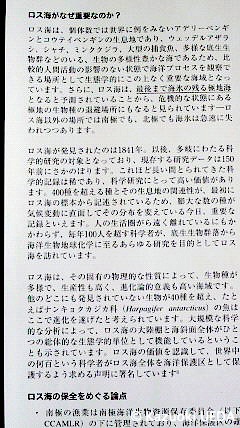 ロス海がなぜ重要なのか？
ロス海は、個体数では世界に例をみないアデリーペンギ
ンとコウテイペンギンの生息地であり、ウェッデルアザラ
シ、シャチ、ミンククジラ、大型の捕食魚、多様な底生生
物群などのいる、生物の多様性豊かな海であるため、比
較的人間活動の影響のない状態で海洋プロセスを観察で
きる場所として生態学的にこの上なく重要な海域となっ
ています。さらに、ロス海は、最後まで海氷の残る極地海
となると予測されていることから、危機的な状態にある
極地の生物種の退避場所にもなると見られています―ロ
ス海以外の場所では南極でも、北極でも海氷は急速に失
われつつあります。
ロス海が発見されたのは1841年。以後、多岐にわたる科
学的研究の対象となっており、現存する研究データは150
年前にさかのぼります。これほど長い間とられてきた科
学的記録は稀であり、科学研究にとって高い価値があり
ます。400種を超える種とその生息地の関連性が、最初に
ロス海の標本から記述されているため、膨大な数の種が
気候変動に直面してその分布を変えている今日、重要な
記録といえます。人の生活圏から遠く離れているにもか
かわらず、毎年100人を超す科学者が、底生生物群落から
海洋生物地球化学に至るあらゆる研究を目的としてロス
海を訪れています。
ロス海は、その固有の物理的な性質によって、生物種が多
様で、生産性も高く、進化論的意義も高い海域です。
他のどこにも発見されていない生物が40種を超え、たと
えばナンキョクカジカ科 (Harpagifer antarcticus) の魚は
ここで進化を遂げたと考えられています。大規模な科学
的な分析によって、ロス海の大陸棚と海斜面全体がひと
つの総体的な生態学的単位として機能しているというこ
とも示されています。ロス海の価値を認識して、世界中
の何百という科学者がロス海全体を海洋保護区として保
護するよう求める声明に署名しています
ロス海の保全をめぐる論点
・ 南極の漁業は南極海洋生物資源保存
CCAMLR) の下に管理されており